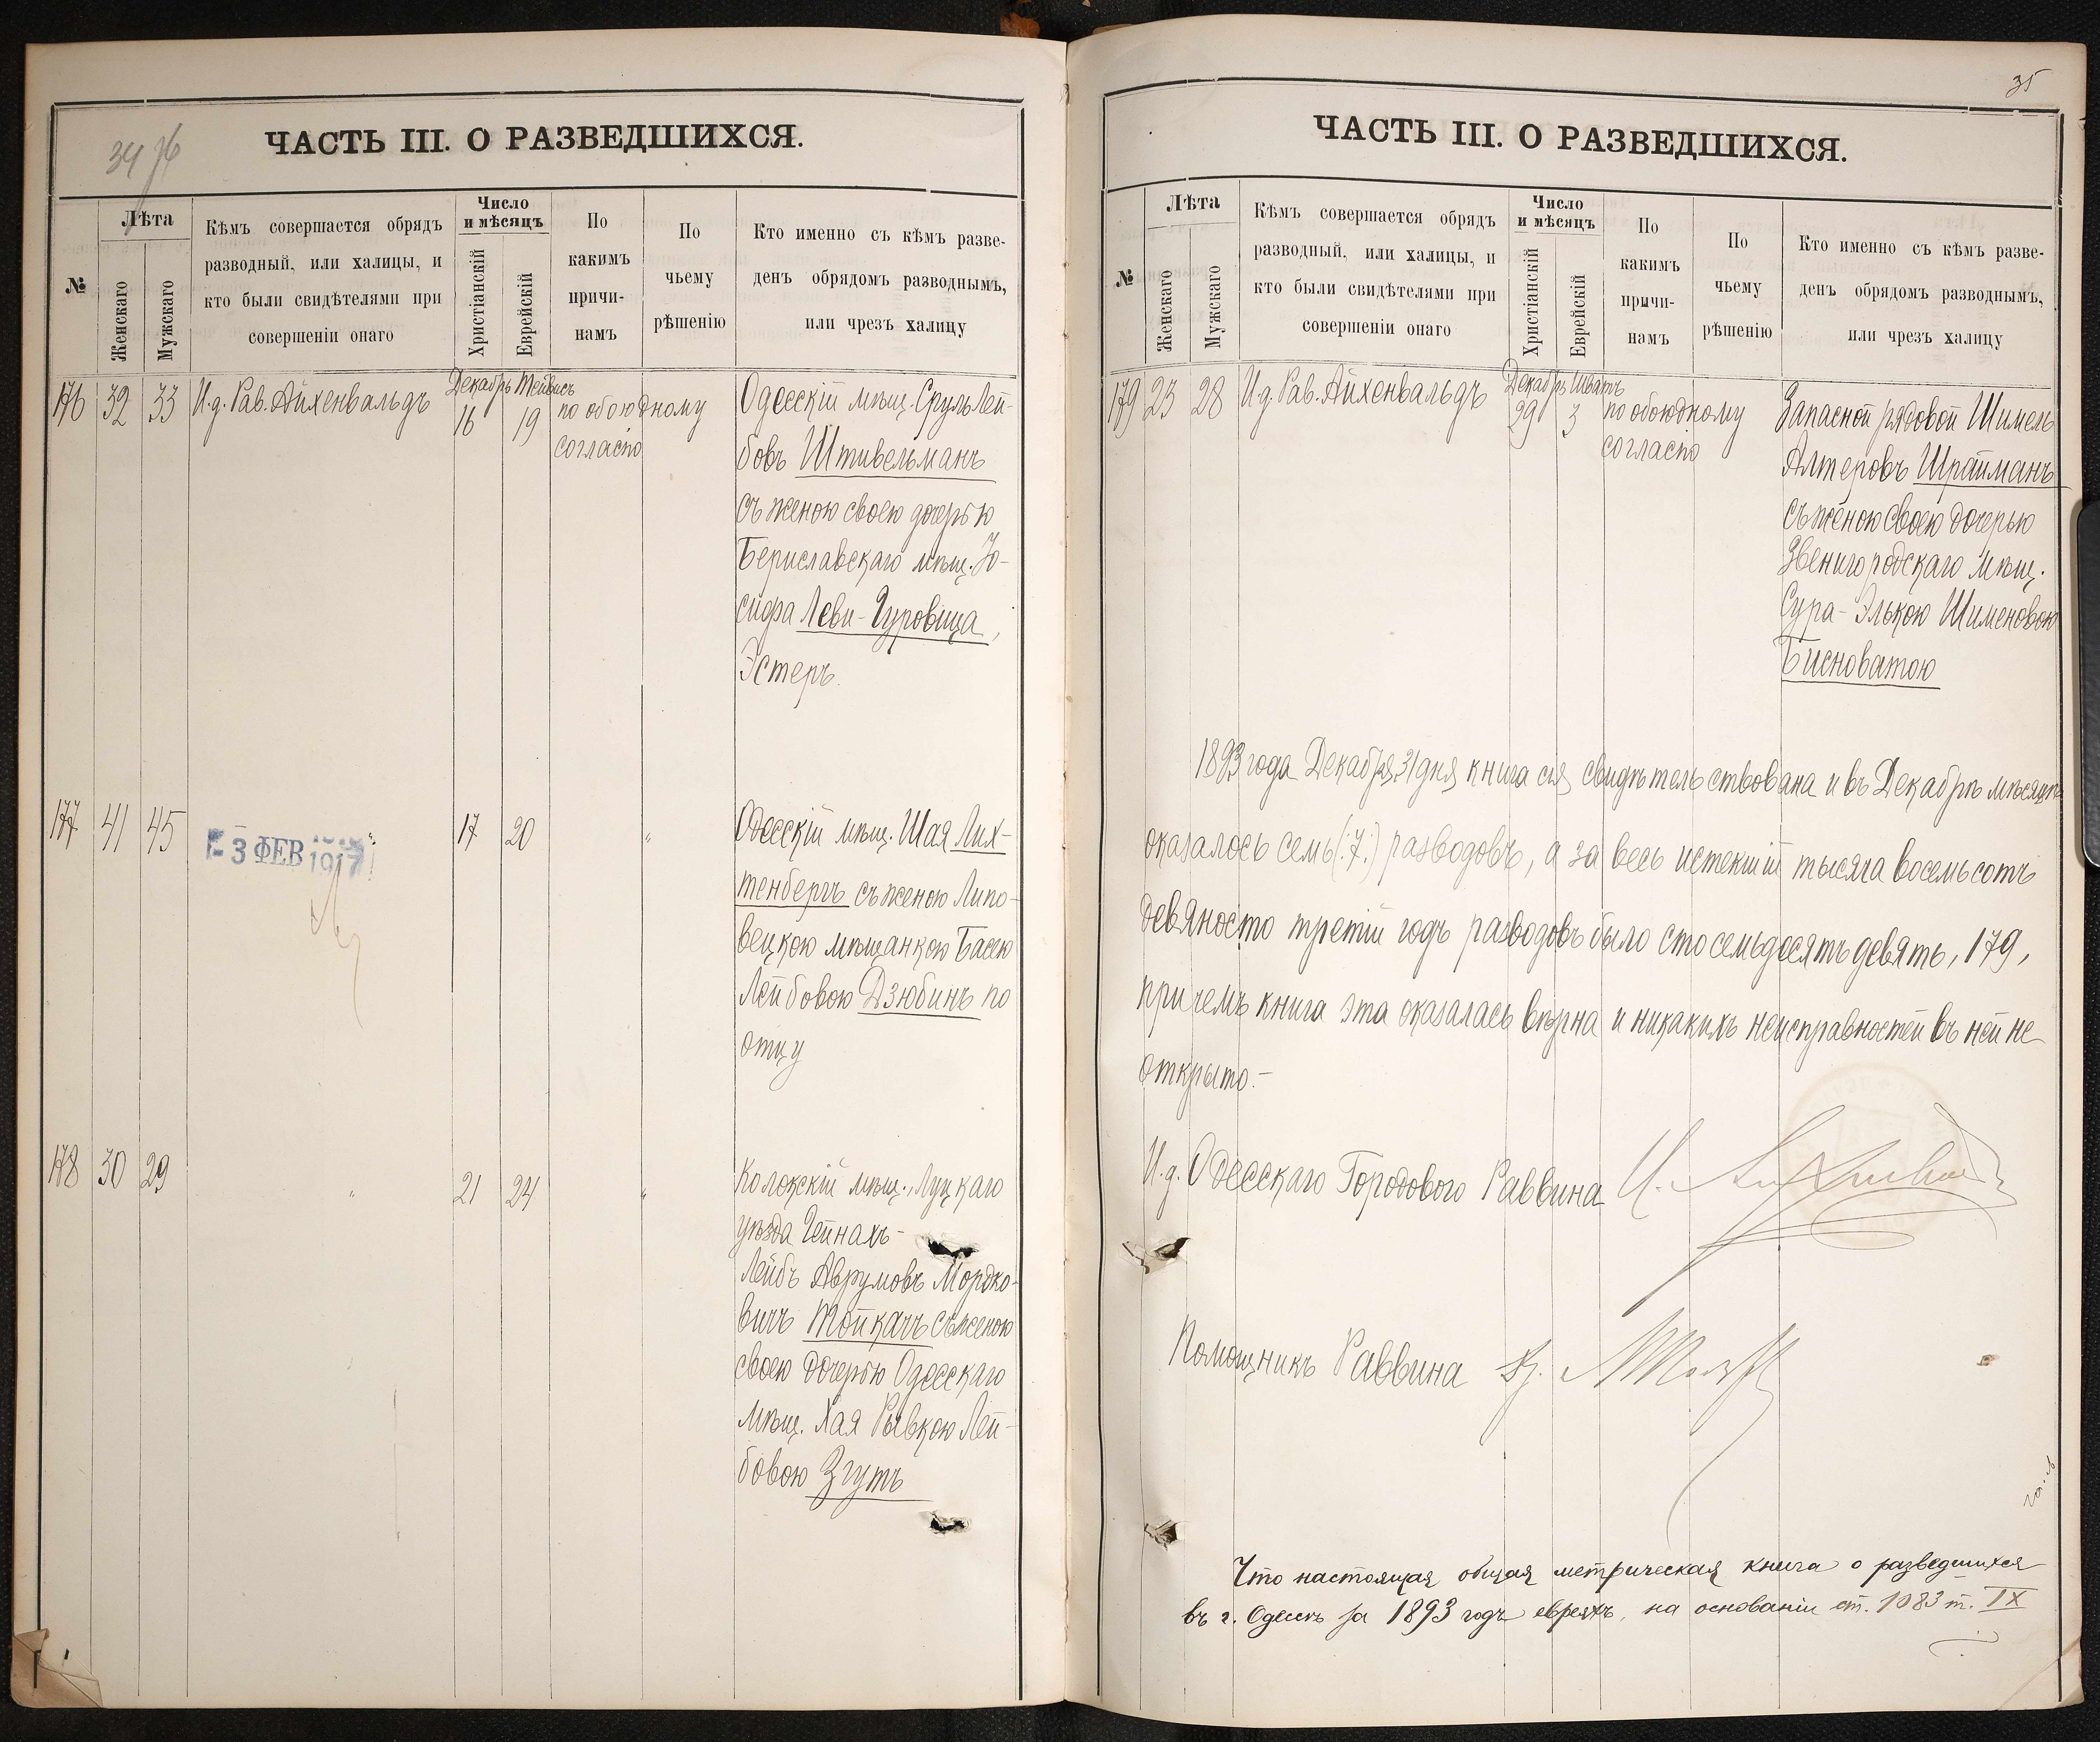 34
ЧАСТЬ III. О РАЗВЕДШИХСЯ.
№
Лѣта
Женскаго
Мужскаго
Кѣмъ совершается обрядъ
разводный, или халицы, и
кто были свидѣтелями при
совершеніи онаго
Число
и мѣсяцъ
Христіанскій
Еврейскій
По
какимъ
причи-
намъ
По
чьему
рѣшенію
Кто именно съ кѣмъ разве-
денъ обрядомъ разводнымъ,
или чрезъ халицу
176 32 33 И.д. Рав. Айхенвальдъ
Декабрь Тейвисъ
16 19
по обоюдному
согласію
Одесскій мѣщ. Сруль Лей-
бовъ Штивельманъ
съ женою своею дочерью
Бериславскаго мѣщ. Іо-
сифа Леви-Гуровица,
Эстеръ.
177 41 45 " 17 20 "
- 3 ФЕВ 1917
Одесскій мѣщ. Шая Лих-
тенбергъ съ женою Липо-
вецкою мѣщанкою Басею
Лейбовою Дзюбинъ по
отцу
178 30 29 " 21 24 "
Колокскій мѣщ., Луцкаго
уѣзда Гейнахъ-
Лейбъ Аврумовъ Мордко-
вичъ Тойкачъ съ женою
своею дочерью Одесскаго
мѣщ. Хая Рывкою Лей-
бовою Згутъ
35
ЧАСТЬ III. О РАЗВЕДШИХСЯ.
№
Лѣта
Женскаго
Мужскаго
Кѣмъ совершается обрядъ
разводный, или халицы, и
кто были свидѣтелями при
совершеніи онаго
Число
и мѣсяцъ
Христіанскій
Еврейскій
По
какимъ
причи-
намъ
По
чьему
рѣшенію
Кто именно съ кѣмъ разве-
денъ обрядомъ разводнымъ,
или чрезъ халицу
179 23 28 И.д. Рав. Айхенвальдъ
Декабрь Шватъ
29 3
по обоюдному
согласію
Запасной рядовой Шимель
Алтеровъ Шрайманъ
съ женою своею дочерью
Звенигородскаго мѣщ.
Сура-Элькою Шименовою
Бисноватою
1893 года Декабря 31 дня книга сія свидѣтельствована и въ Декабрѣ мѣсяцѣ
оказалось семь (:7:) разводовъ, а за весь истекшій тысяча восемьсотъ
девяносто третій годъ разводовъ было сто семьдесятъ девять, 179,
при чемъ книга эта оказалась вѣрна и никакихъ неисправностей въ ней не
открыто.-
И.д. Одесскаго Городового Раввина
Помощникъ Раввина
Что настоящая общая метрическая книга о разведшихся
въ г. Одессѣ за 1893 годъ евреяхъ, на основаніи ст. 1083 т. IX